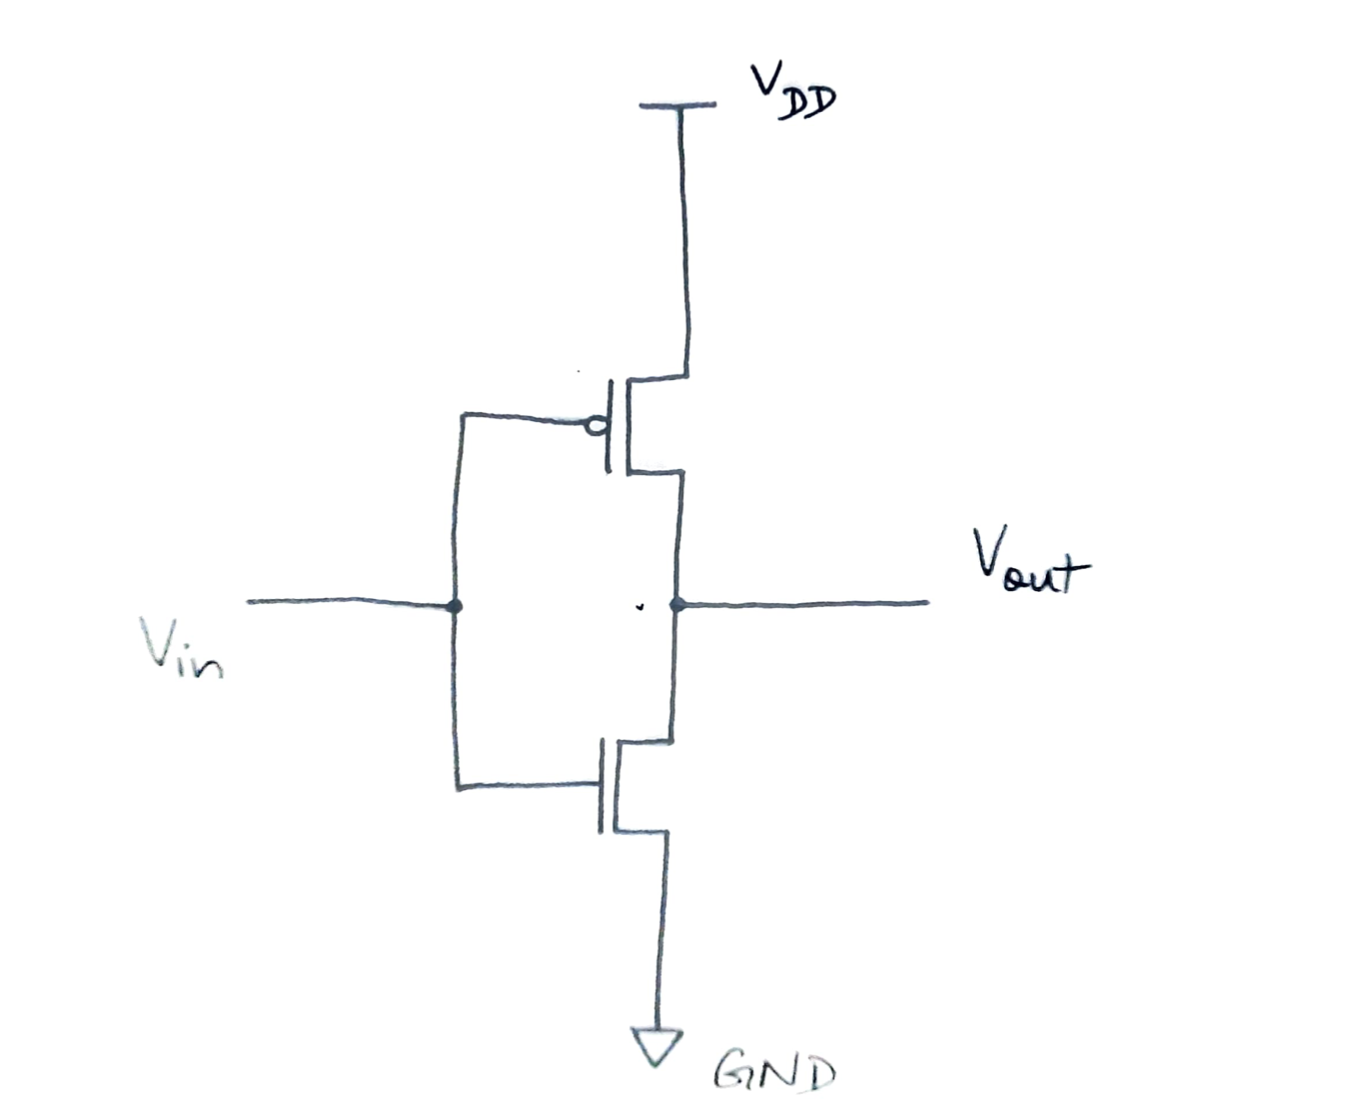 VDD
Vout
Vin
GND